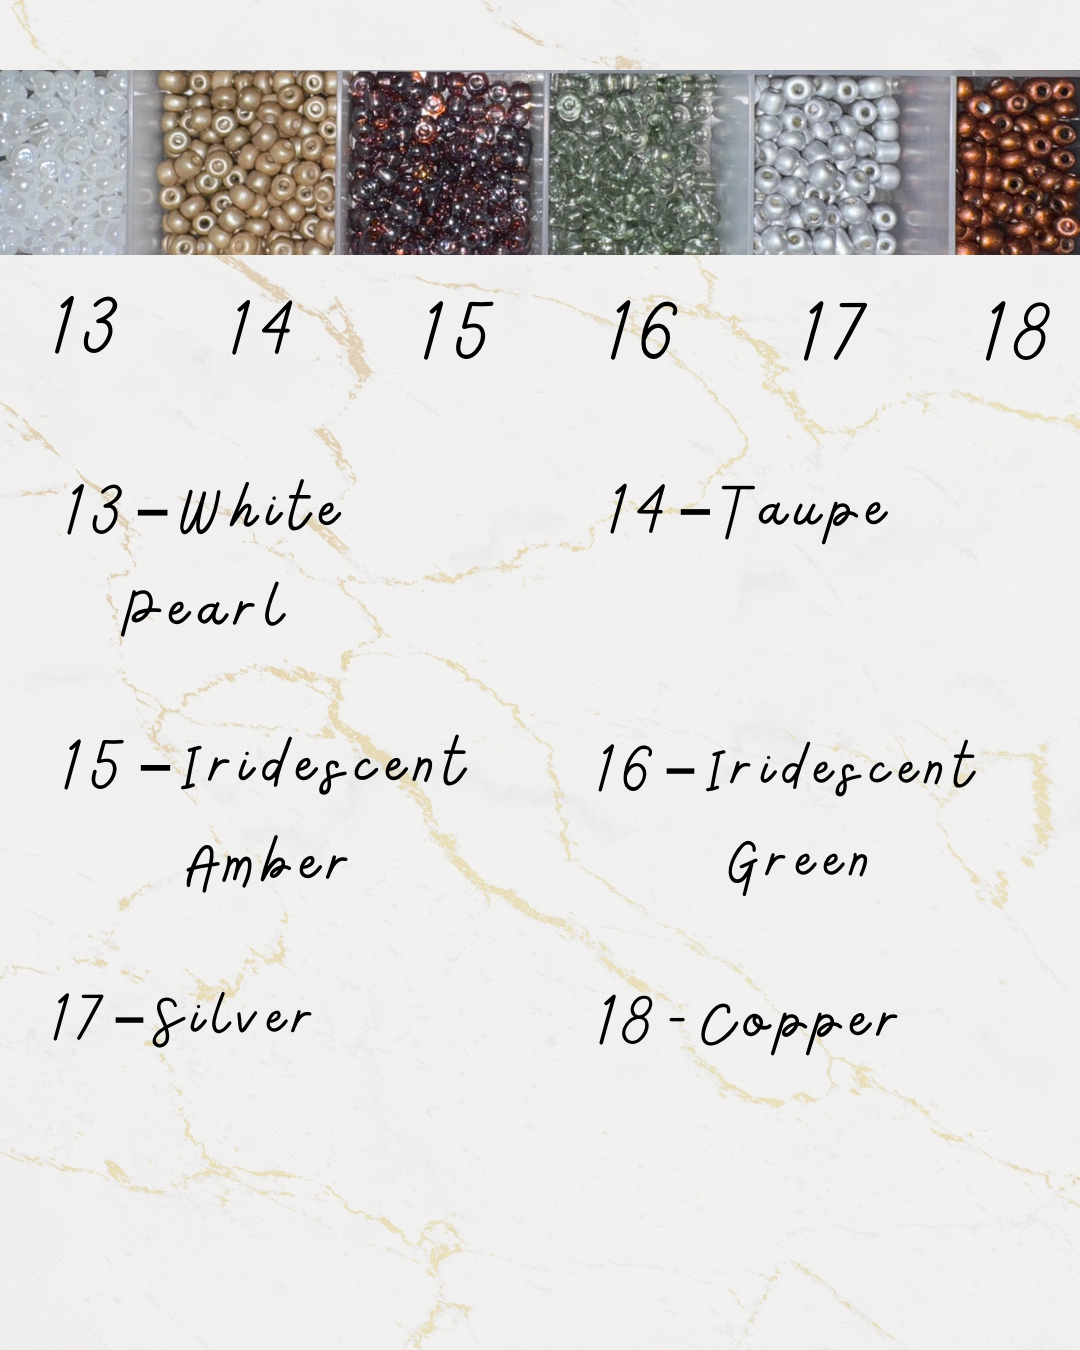 13 14 15 16 17 18
13 – White
Pearl
14 – Taupe
15 – Iridescent
Amber
16 – Iridescent
Green
17 – Silver
18 - Copper